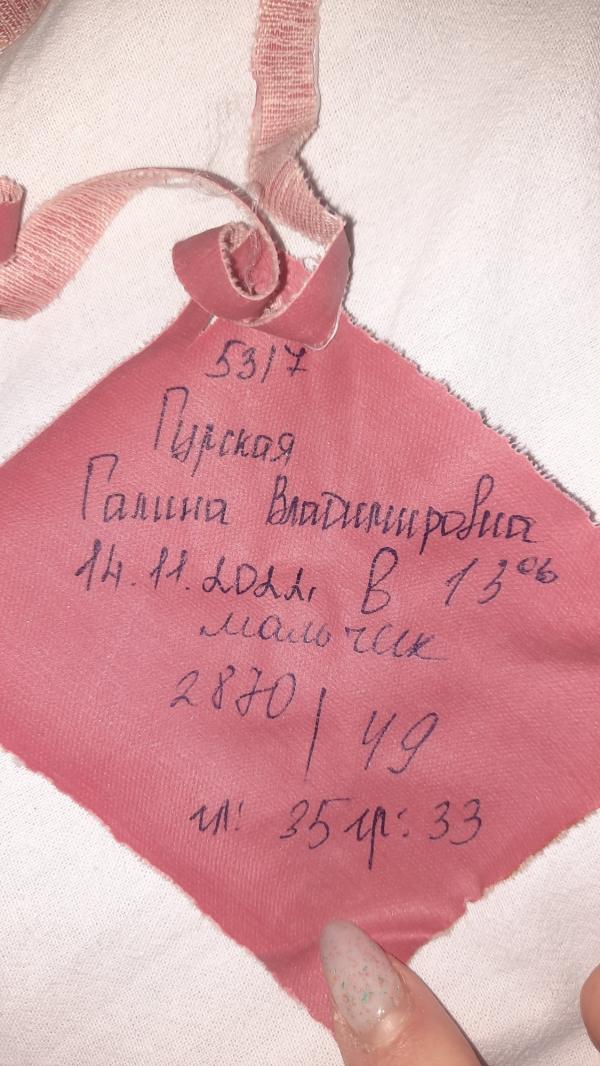 5317
Гурская
Галина Владимировна
14.11.2022г. в 13⁰⁶
мальчик
2870 | 49
гл: 35 гр: 33